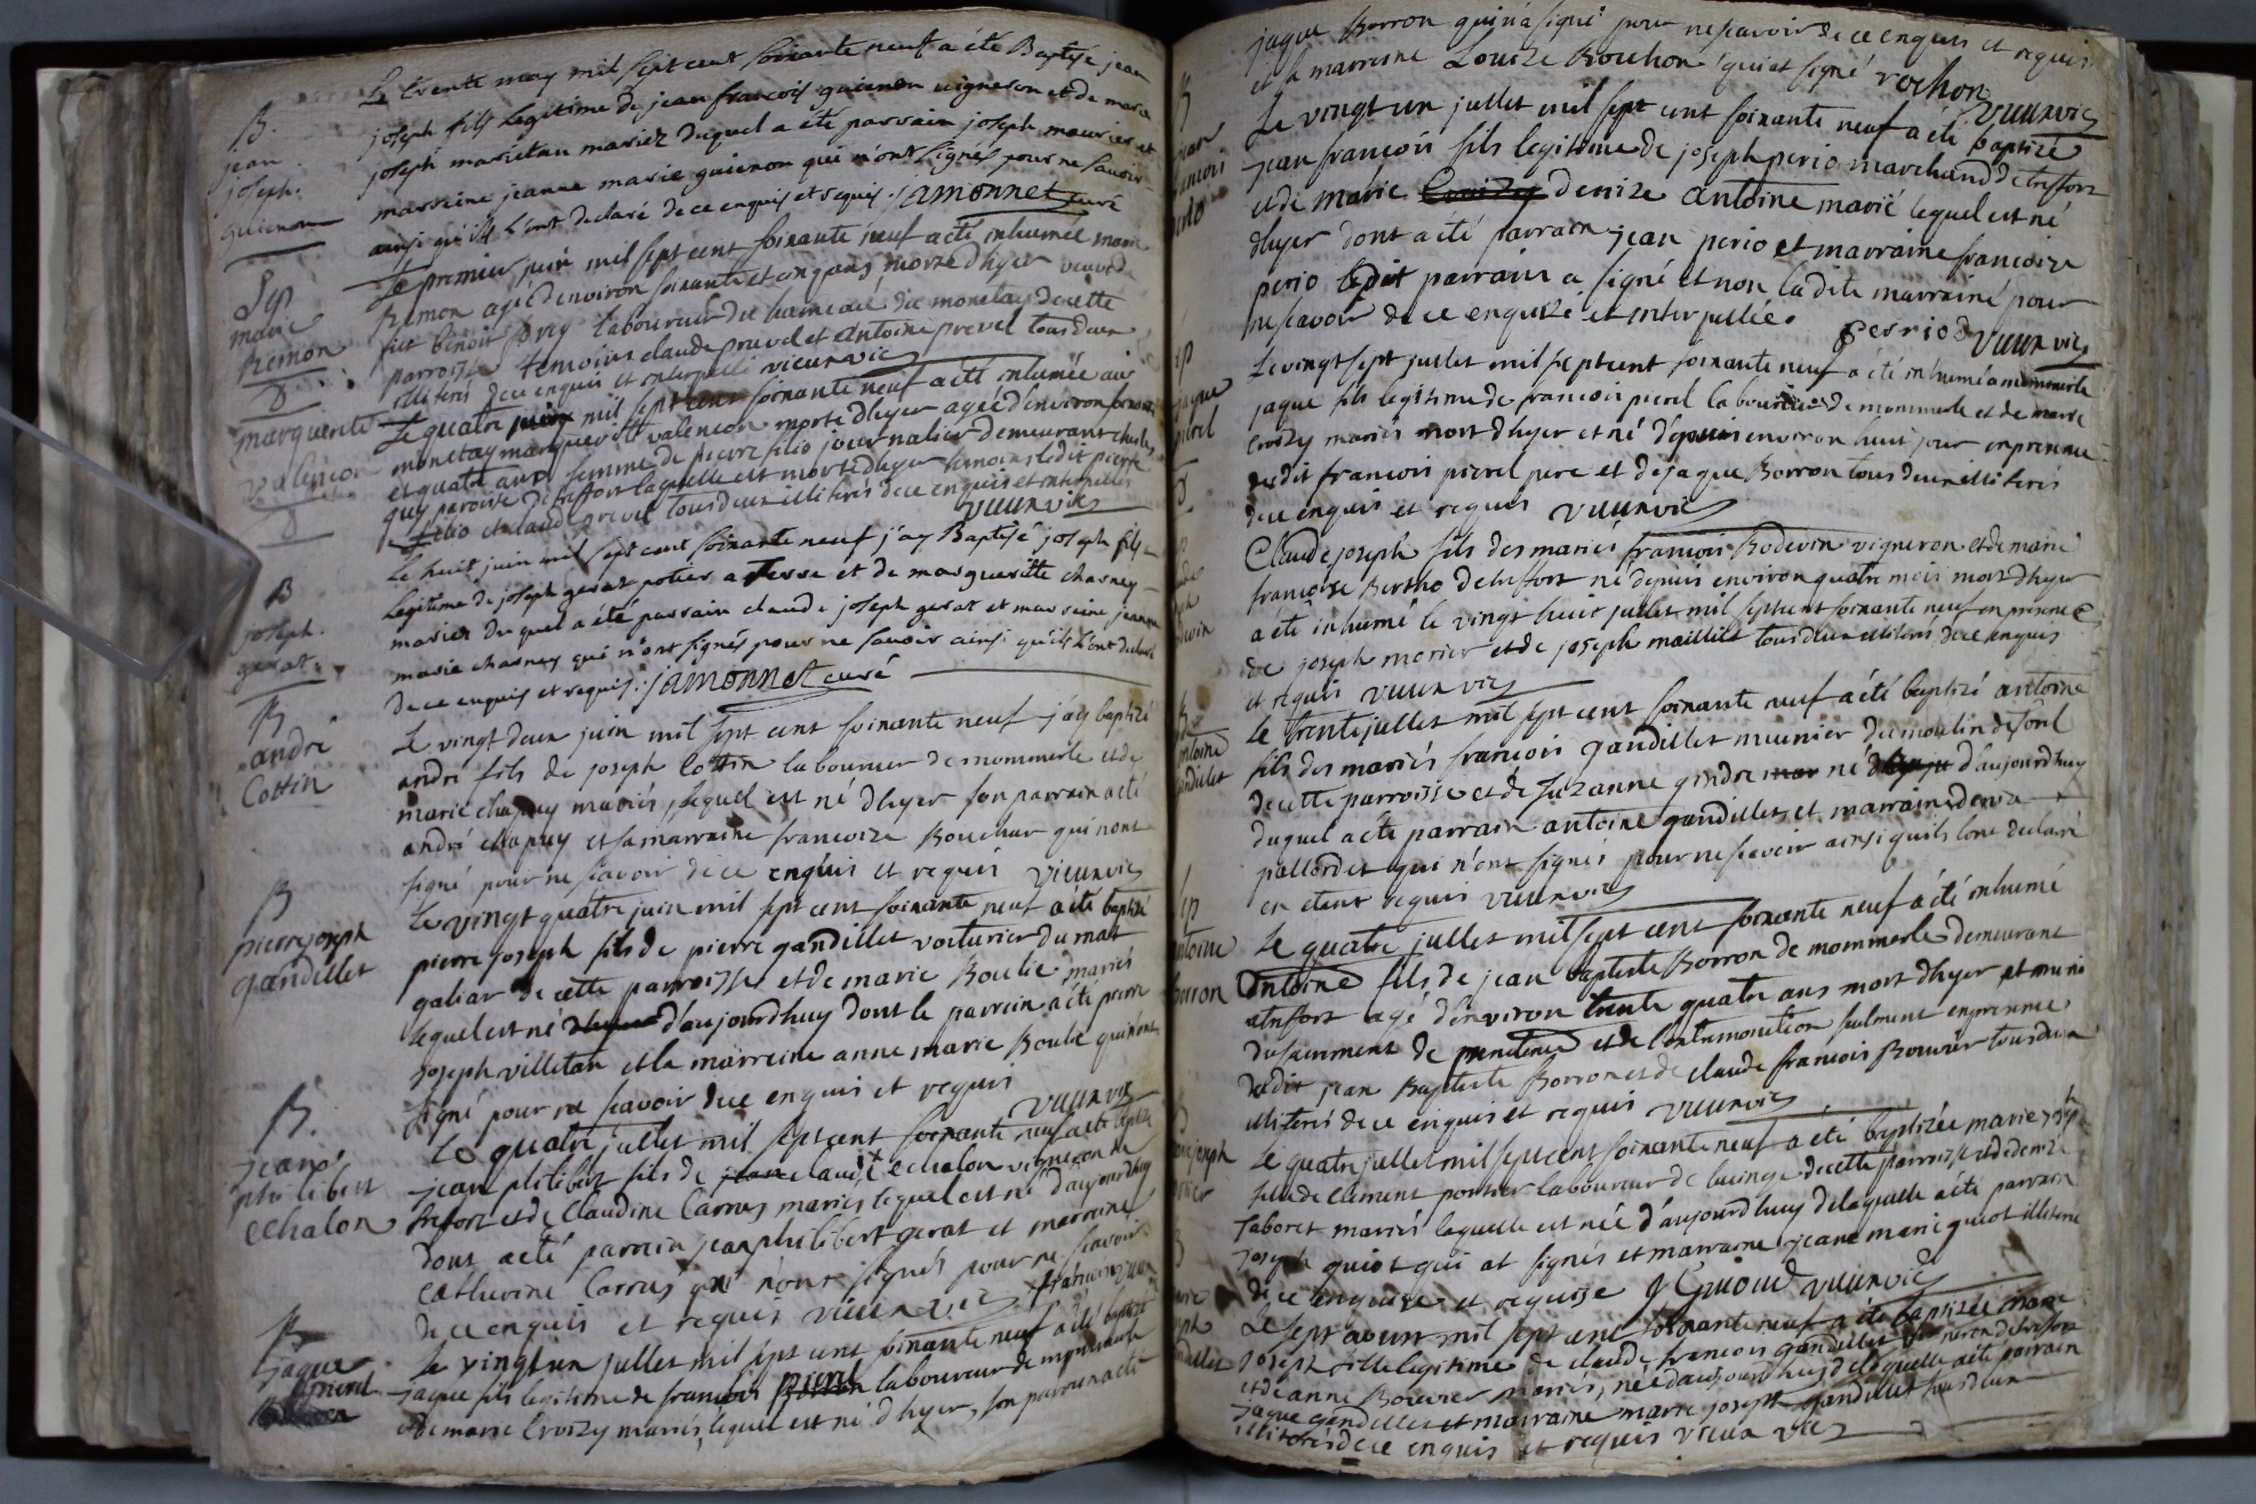 B.
jean
joseph.
guienon
Le trente may mil sept cent soixante neuf a été Baptisé jean
joseph fils Legitime de jean francois guienon vigneron et de marie
joseph marietan mariez duquel a été parrain joseph maurier et
marreine jeanne marie guienon qui n'ont signés pour ne savoir
ainsi qu'ils l'ont declaré de ce enquis et requis. jamonnet curé
Sep
marie
Remon
Le premier juin mil sept cent soixante neuf a été inhumée marie
Remon agée d'environ soixante et cinq ans morte dhyer veuve de
fut benoit laboureur du hameau de monetay de cette
parroisse temoins claude prevel et antoine prevel tous deux
illiterés de ce enquis et interpellés vieux vic
marguerite
valencon
Le quatre juin mil sept cent soixante neuf a été inhumée au
monetay marguerite valencon morte dhyer agée d'environ
et quatre ans femme de pierre filio journalier demeurant
paroisse de treffort laquelle est morte dhyer temoins ledit pierre
filio et claude prevel tous deux illiterés de ce enquis et interpellés
vieux vic
B
joseph.
gerat.
Le huit juin mil sept cent soixante neuf j'ay Baptisé joseph fils
Legitime de joseph gerat potier a Terre et de margueritte charney
mariez du quel a été parrain claude joseph gerat et marreine jeanne
marie charney qui n'ont signés pour ne savoir ainsi qu'ils l'ont declaré
de ce enquis et requis. jamonnet curé
B
andré
Cottin
Le vingt deux juin mil sept cent soixante neuf j'ay baptizé
andré fils de joseph Cottin laboureur de mommerle et de
marie chapuy mariés, lequel est né dhyer son parrain a été
andré chapuy et sa marraine francoize Bouchar qui n'ont
signé pour ne scavoir de ce enquis et requis vieux vic
B
pierre joseph
gandillet
Le vingt quatre juin mil sept cent soixante neuf a été baptizé
pierre joseph fils de pierre gandillet voiturier du mas
galiar de cette parroisse et de marie Boulie mariés
lequel est né d'aujourdhuy dont le parrein a été pierre
joseph villetan et la marreine anne marie Boulie qui n'ont
signé pour ne scavoir de ce enquis et requis
vieux vic
B.
jean
philibert
echalon
Le quatre jullet mil sept cent soixante neuf a été baptizé
jean philibert fils de claude echalon vigneron de
trefort et de Claudine Carrus mariés lequel est né d'aujourdhuy
dont a été parrain jean philibert gerat et marraine
catherine Carrus qui n'ont signés pour ne scavoir
de ce enquis et requis vieux vic
B
jaque
pierel
Le vingt un jullet mil sept cent soixante neuf a été baptizé
jaque fils legitime de francois pierel laboureur de mommerle
et de marie Croizy mariés, lequel est né dhyer, son parrain a été
jaque Borron qui n'a signé pour ne scavoir de ce enquis et requis
et la marreine Louize Rochon qui at signé rochon
vieux vic
Le vingt un jullet mil sept cent soixante neuf a été baptizé
jean françois fils legitime de joseph perio marchand de treffort
et de marie denize antoine marié lequel est né
dhyer dont a été parrain jean perio et marraine francoize
perio ledit parrain a signé et non la dite marraine pour
ne scavoir de ce enquize et interpellée. perriod vieux vic
Le vingt sept jullet mil sept cent soixante neuf a été inhumé a mommerle
jaque fils legitime de francois pierel laboureur de mommerle et de marie
croizy mariés mort dhyer et né depuis environ huit jour en presence
dudit francois pierel pere et de jaque Borron tous deux illiterés
de ce enquis et requis vieux vic
Claude joseph fils des mariés francois Bodevin vigneron et de marie
francoise Bertho de treffort né depuis environ quatre mois mort dhyer
a été inhumé le vingt huit jullet mil sept cent soixante neuf en presence
de joseph morier et de joseph maillet tous deux illiterés de ce enquis
et requis vieux vic
Le trente jullet mil sept cent soixante neuf a été baptizé antoine
fils des mariés francois gandillet meunier du moulin de
de cette parroisse et de Suzanne gindre né d'aujourdhuy
duquel a été parrain antoine gandillet et marraine
pallordet qui n'ont signés pour ne scavoir ainsi quils lont declaré
en etant requis vieux vic
Le quatre jullet mil sept cent soixante neuf a été inhumé
Antoine fils de jean baptiste Borron de mommerle demeurant
a trefort agé d'environ trente quatre ans mort dhyer et muni
du sacrement de penitence et de l'extremonction seulment en presence
dudit jean Baptiste Borron et de claude francois Bouvier tous deux
illiterés de ce enquis et requis vieux vic
Le quatre jullet mil sept cent soixante neuf a été baptizée marie jph
fille de Clement portier laboureur de lucinge de cette parroisse et de denize
Taboret mariés laquelle est née d'aujourdhuy de laquelle a été parrain
joseph guiot qui at signés et marraine jeane marie guiot illiterée
de ce enquize et requise J Guioud vieux vic
Le sept aoust mil sept cent soixante neuf a été baptizée marie
joseph fille legitime de claude francois gandillet vigneron de trefort
et de anne Bouvier mariés, née d'aujourd'huy de laquelle a été parrain
jaque gandillet et marraine marie joseph gandillet tous deux
illiterés de ce enquis et requis vieux vic